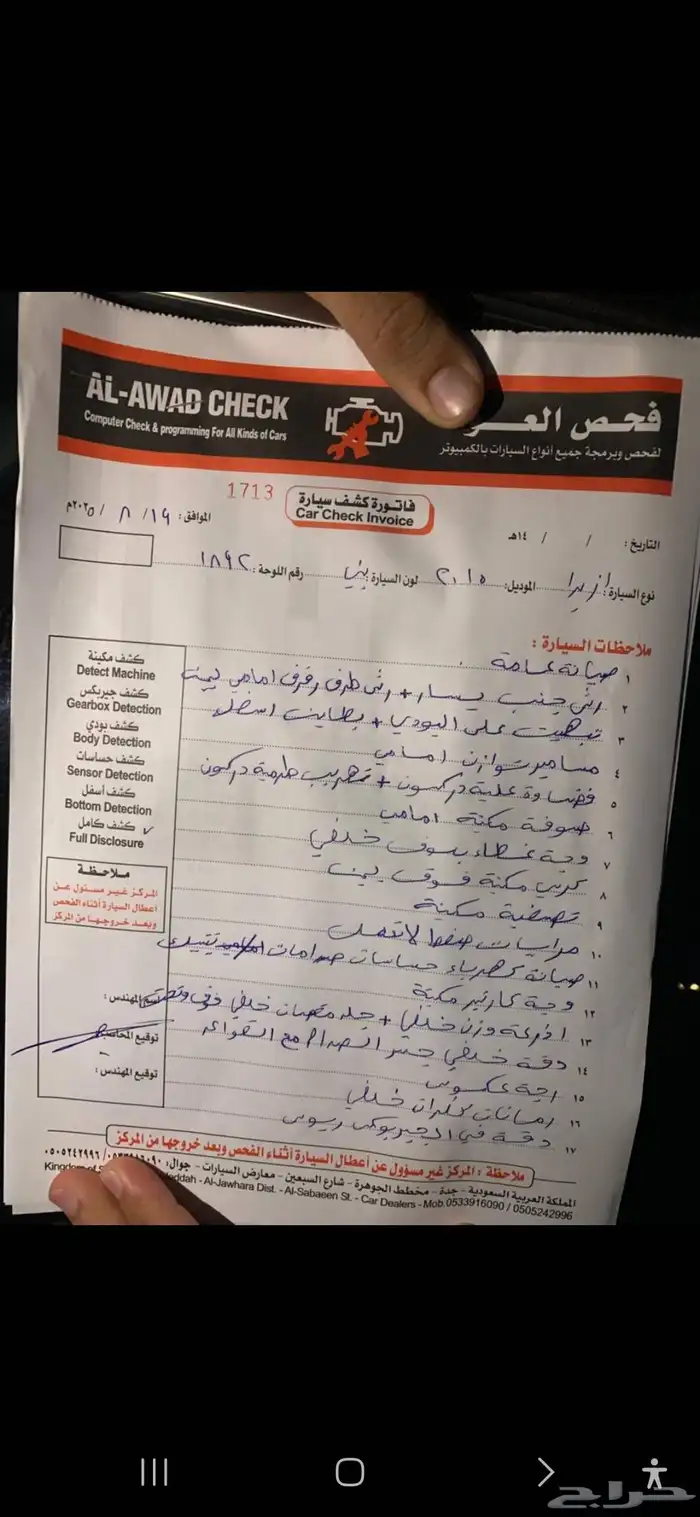 AL-AWAD CHECK
Computer Check & programming For All Kinds of Cars
فحص
لفحص وبرمجة جميع أنواع السيارات بالكمبيوتر
1713
فاتورة كشف سيارة
Car Check Invoice
التاريخ : / / ١٤هـ
الموافق : ١٩ / ٨ / ٢٠٢٥م
نوع السيارة : ازيرا الموديل : ٢٠١٥ لون السيارة : بني رقم اللوحة : ١٨٩٢
ملاحظات السيارة :
١ صيانة عامة
٢ رش جنب يسار + رش طرف رفرف امامي يمين
٣ تبهيت على البودي + بطاين اسفله
٤ مسامير توازن امامي
٥ علبة دركسون + تهريب طرمبة دركسون
٦ صوفة مكنة امامي
٧ وجة غطاء خلفي
٨ كرسي مكنة فوق يمين
٩ تصفية مكنة
١٠ حساسات ضغط لاتعمل
١١ صيانة كهرباء حساسات صدامات
١٢ وجة كارتير مكنة
١٣ اذرعة وزن خلفي + جلد مقصات خلفي
١٤ دقة خلفي جسر الصدام مع القواعد
١٥ رجة عكوس
١٦ رمانات خلفي
١٧ دقة في الجيربوكس ريوس
كشف مكينة
Detect Machine
كشف جيربكس
Gearbox Detection
كشف بودي
Body Detection
كشف حساسات
Sensor Detection
كشف أسفل
Bottom Detection
✓ كشف كامل
Full Disclosure
ملاحظة
المركز غير مسئول عن
أعطال السيارة أثناء الفحص
وبعد خروجها من المركز
المهندس :
توقيع المحاسب
توقيع المهندس :
ملاحظة : المركز غير مسؤول عن أعطال السيارة أثناء الفحص وبعد خروجها من المركز
المملكة العربية السعودية - جدة - مخطط الجوهرة - شارع السبعين - معارض السيارات - جوال: ٠٥٠٥٢٤٢٩٩٦
Kingdom of Jeddah - Al-Jawhara Dist. - Al-Sabaeen St. - Car Dealers - Mob.0533916090 / 0505242996
حراج